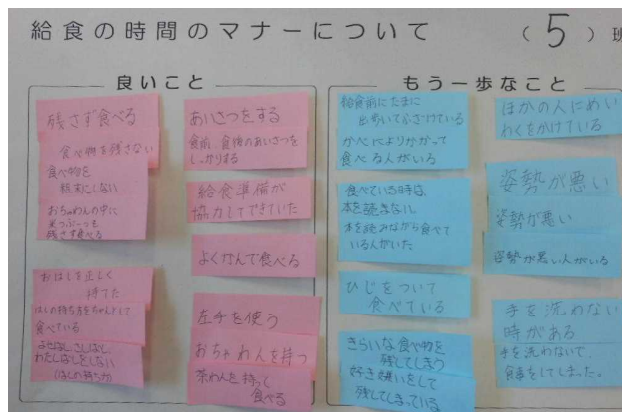 給食の時間のマナーについて
(5)班
良いこと
残さず食べる
食べ物を残さない
食べ物を
粗末にしない
おちゃわんの中に
米つぶ一つも
残さず食べる
おはしを正しく
持てた
はしの持ち方をちゃんとして
食べている
よせばし、さしばし、
わたしばしをしない
(はしの持ち方)
あいさつをする
食前、食後のあいさつを
しっかりする
給食準備が
協力してできていた
よくかんで食べる
左手を使う
おちゃわんを持つ
茶わんを持って
食べる
もう一歩なこと
給食前にたまに
出歩いてふざけている
かべによりかかって
食べる人がいる
食べている時は、
本を読まない。
本を読みながら食べて
いる人がいた。
ひじをついて
食べている
きらいな食べ物を
残してしまう
好き嫌いをして
残してしまっている
ほかの人にめい
わくをかけている
姿勢が悪い
姿勢が悪い
姿勢が悪い人がいる
手を洗わない
時がある
手を洗わないで、
食事をしてしまった。